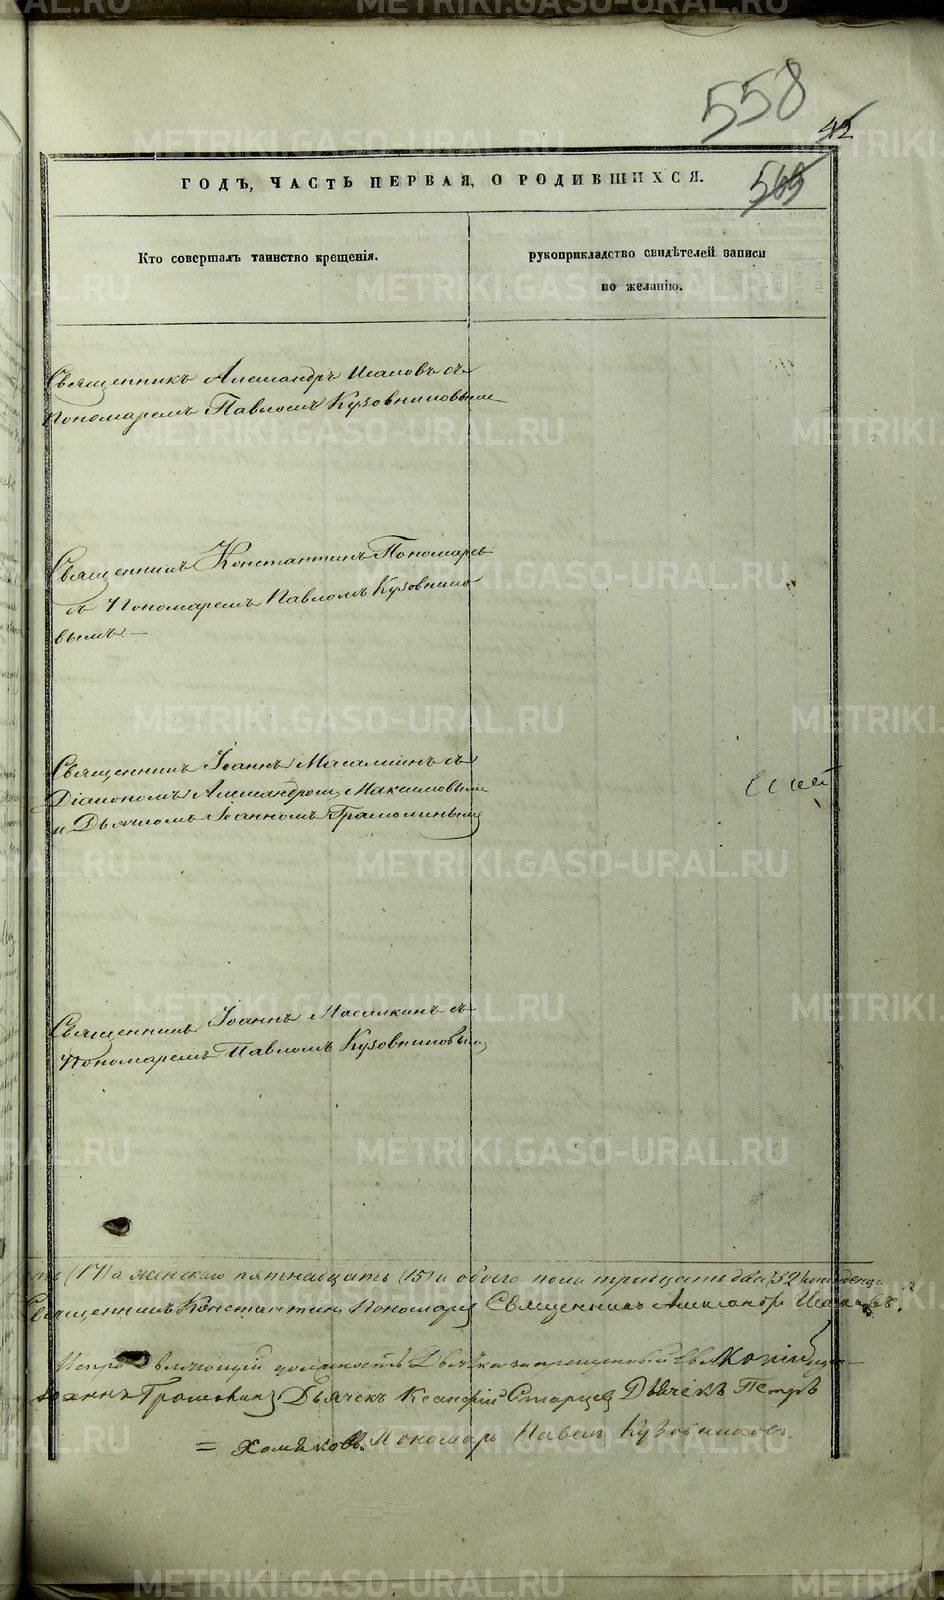 558
42
569
ГОДЪ, ЧАСТЬ ПЕРВАЯ, О РОДИВШИХСЯ.
Кто совершалъ таинство крещенія.
рукоприкладство свидѣтелей записи
по желанію.
Священникъ Александръ Исаковъ съ
Пономаремъ Павломъ Кузовниковымъ
Священникъ Константинъ Пономаревъ
съ Пономаремъ Павломъ Кузовнико
вымъ
Священникъ Іоаннъ Масалкинъ съ
Діакономъ Александромъ Максимовымъ
и Дьячкомъ Іоанномъ Грамолинымъ
Священникъ Іоаннъ Масалкинъ съ
Пономаремъ Павломъ Кузовниковымъ
(17) а женскаго пятнадцать (15) а обоего пола тридцать два (32)
Священникъ Константинъ Пономаревъ Священникъ Александръ Исаковъ.
должность Дьячка запрещенный
Іоаннъ Дьячекъ Старцев Дьячекъ Петръ
= Хомяковъ. Пономарь Павелъ Кузовниковъ.
METRIKI.GASO-URAL.RU